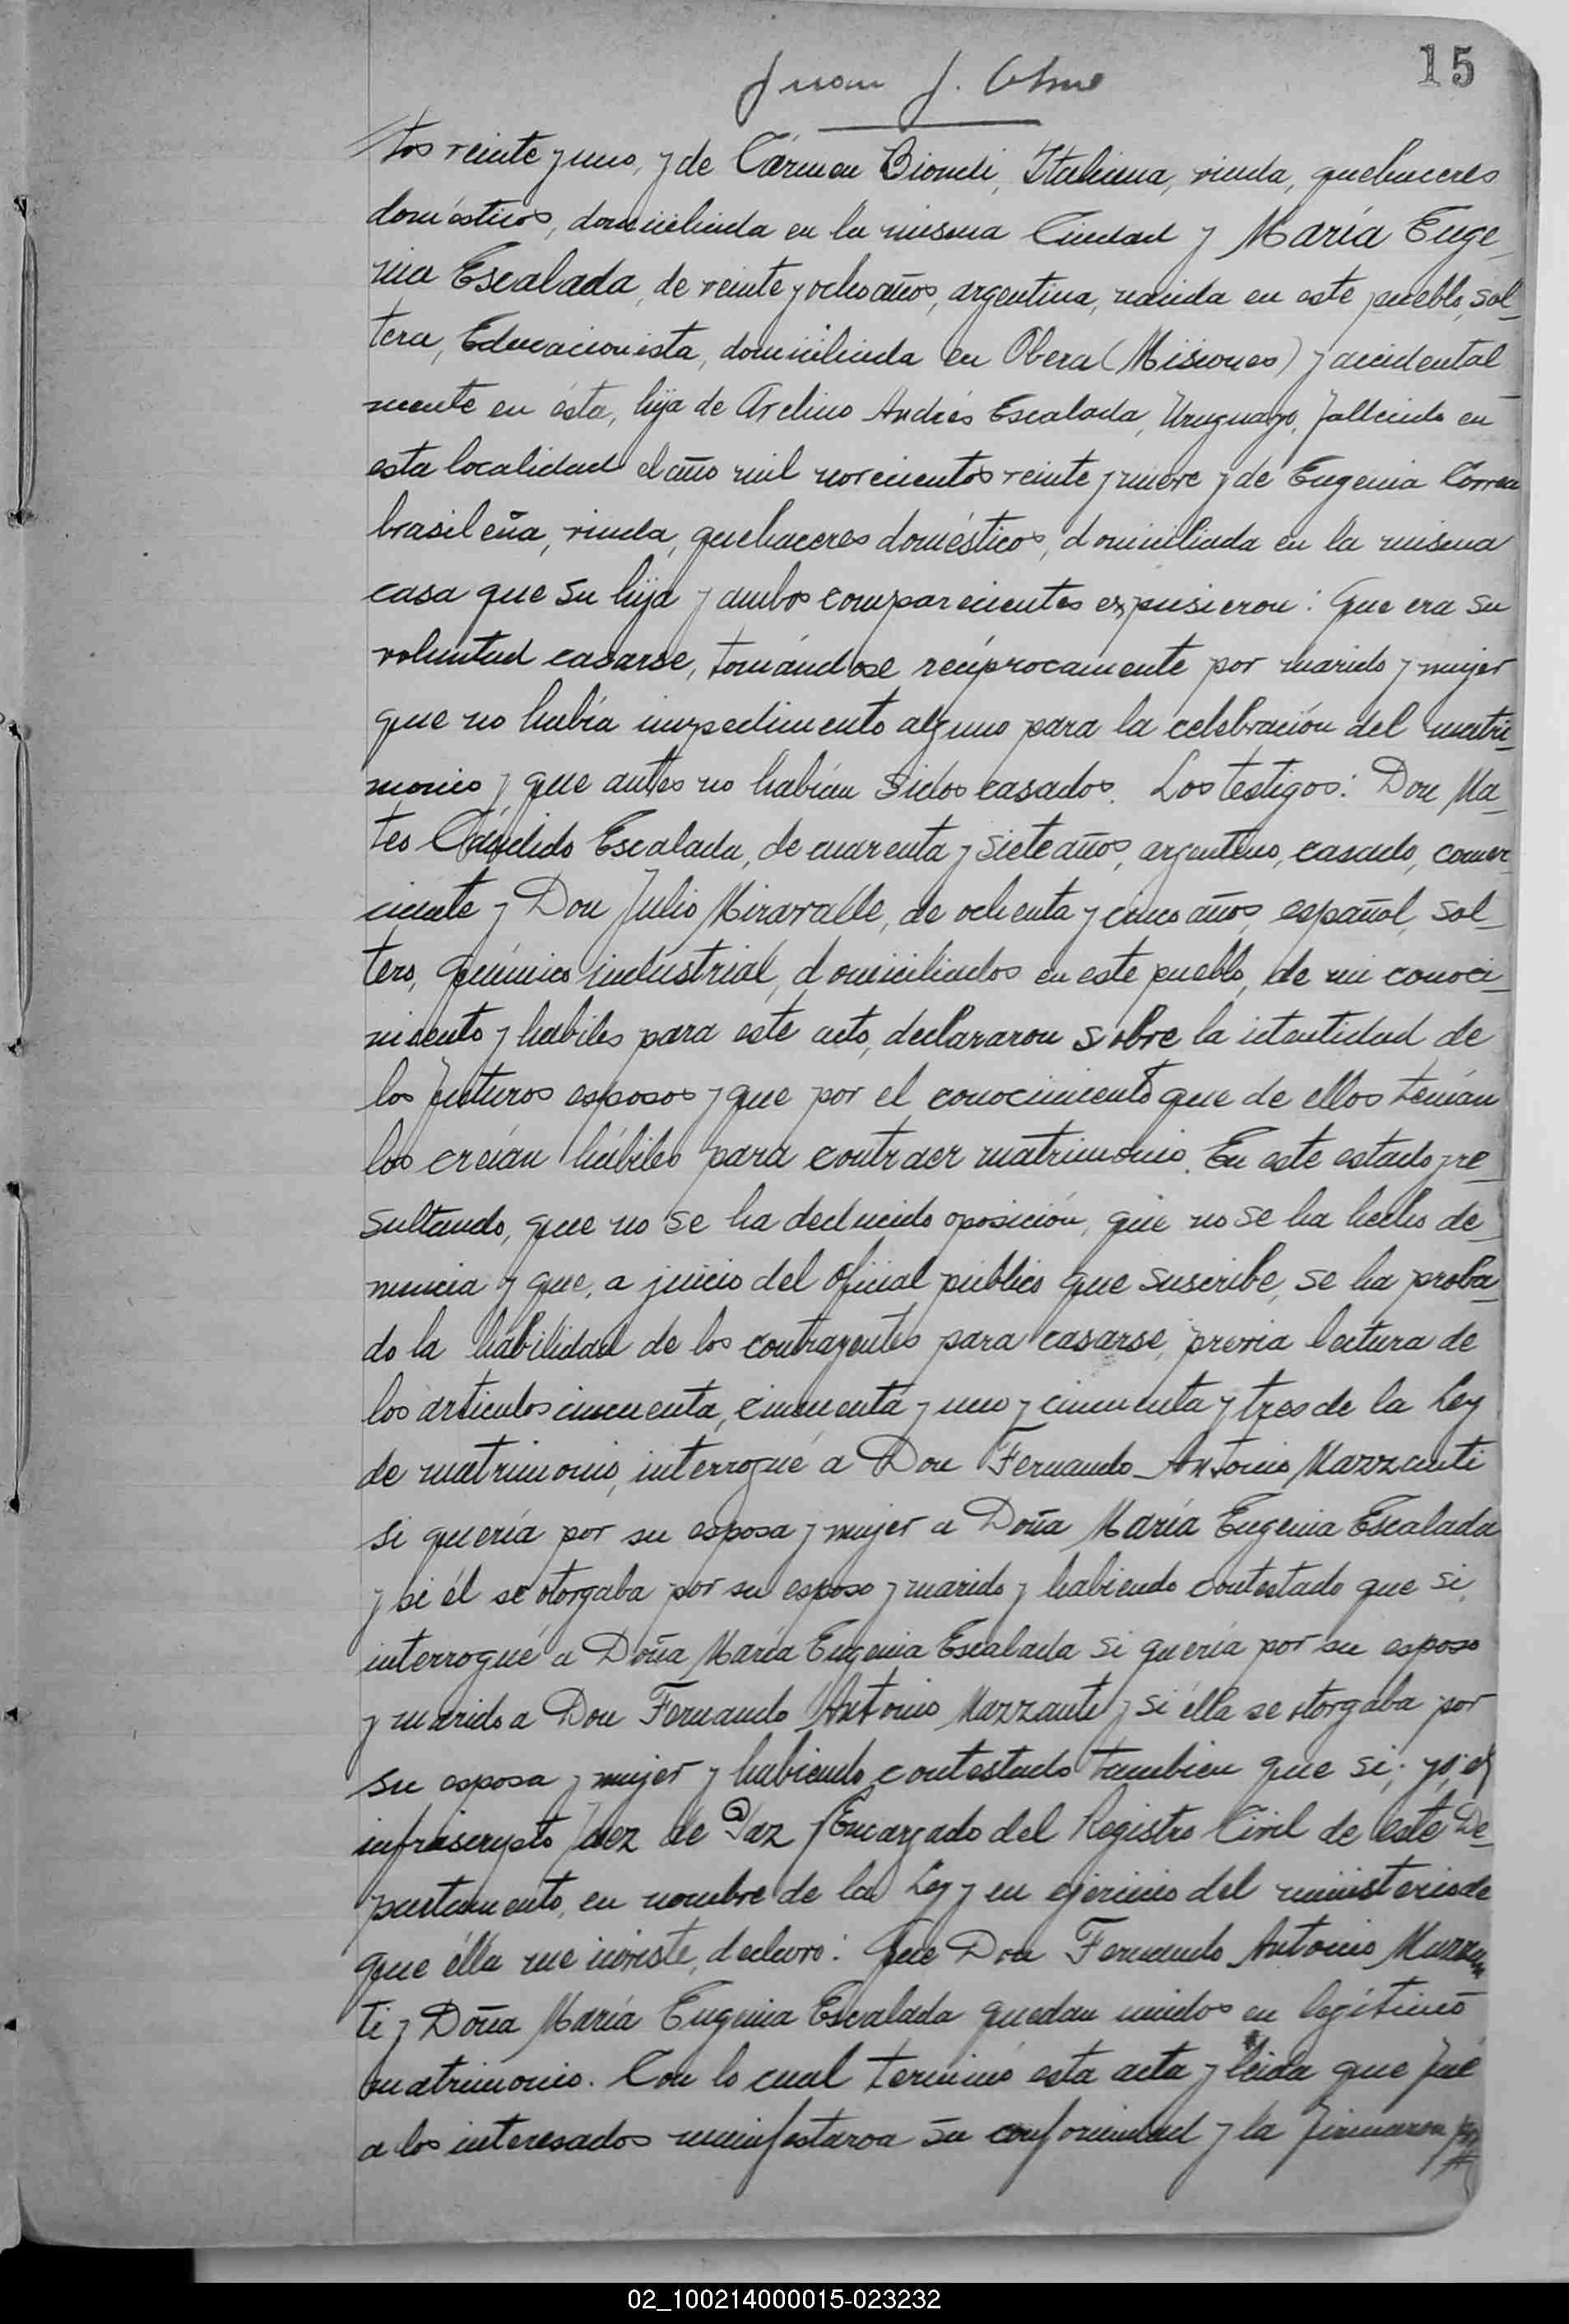 15
Juan J.
tos veinte y uno, y de Cármen Biondi, Italiana, viuda, quehaceres
domésticos, domiciliada en la misma Ciudad y María Euge_
nia Escalada, de veinte y ocho años, argentina, nacida en este pueblo, sol_
tera, Educacionista, domiciliada en Obera (Misiones) y accidental_
mente en ésta, hija de Avelino Andrés Escalada, Uruguayo, fallecido en
esta localidad el año mil novecientos veinte y nueve y de Eugenia Correa
brasileña, viuda, quehaceres domésticos, domiciliada en la misma
casa que su hija y ambos comparecientes expusieron: Que era su
voluntad casarse, tomándose recíprocamente por marido y mujer
que no había impedimento alguno para la celebración del matri_
monio y que antes no habían sidos casados. Los testigos: Don Ma_
teo Cándido Escalada, de cuarenta y siete años, argentino, casado, comer_
ciante y Don Julio Miravalle, de ochenta y cinco años, español, sol_
tero, químico industrial, domiciliados en este pueblo, de mi conoci_
miento y habiles para este acto, declararon sobre la identidad de
los futuros esposos y que por el conocimiento que de ellos tenían
los creían hábiles para contraer matrimonio. En este estado y re_
sultando, que no se ha deducido oposición, que no se ha hecho de_
nuncia y que, a juicio del Oficial público que suscribe, se ha proba_
do la habilidad de los contrayentes para casarse, previa lectura de
los articulos cincuenta, cincuenta y uno y cincuenta y tres de la Ley
de matrimonio, interrogué a Don Fernando Antonio Mazzanti
si quería por su esposa y mujer a Doña María Eugenia Escalada
y si él se otorgaba por su esposo y marido y habiendo contestado que si,
interrogué a Doña María Eugenia Escalada si quería por su esposo
y marido a Don Fernando Antonio Mazzanti y si élla se otorgaba por
su esposa y mujer y habiendo contestado tambien que si; yo, el
infrascrypto Juez de Paz y Encargado del Registro Civil de este De_
partamento, en nombre de la Ley y en ejercicio del ministerio de
que élla me inviste, declaro: Que Don Fernando Antonio Mazzan
ti y Doña María Eugenia Escalada quedan unidos en legítimo
matrimonio. Con lo cual terminó esta acta y leida que fué
a los interesados manifestaron su conformidad y la firmaron
02_100214000015-023232